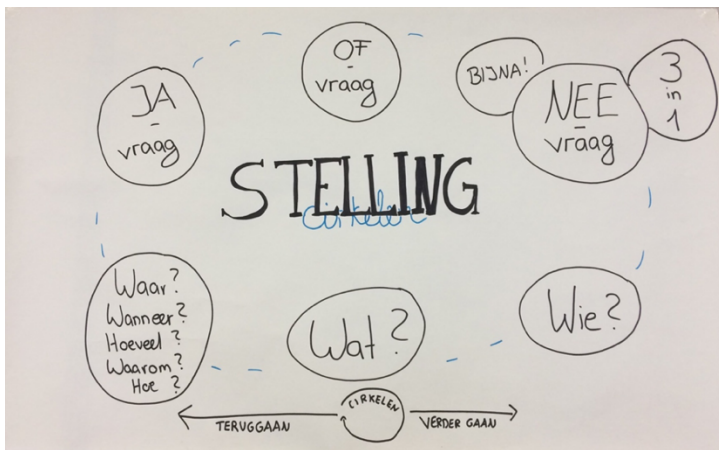 JA
-
vraag
OF
-
vraag
BIJNA!
NEE
-
vraag
3
in
1
STELLING
cirkelen
Waar?
Wanneer?
Hoeveel?
Waarom?
Hoe?
Wat?
Wie?
TERUGGAAN
CIRKELEN
VERDER GAAN